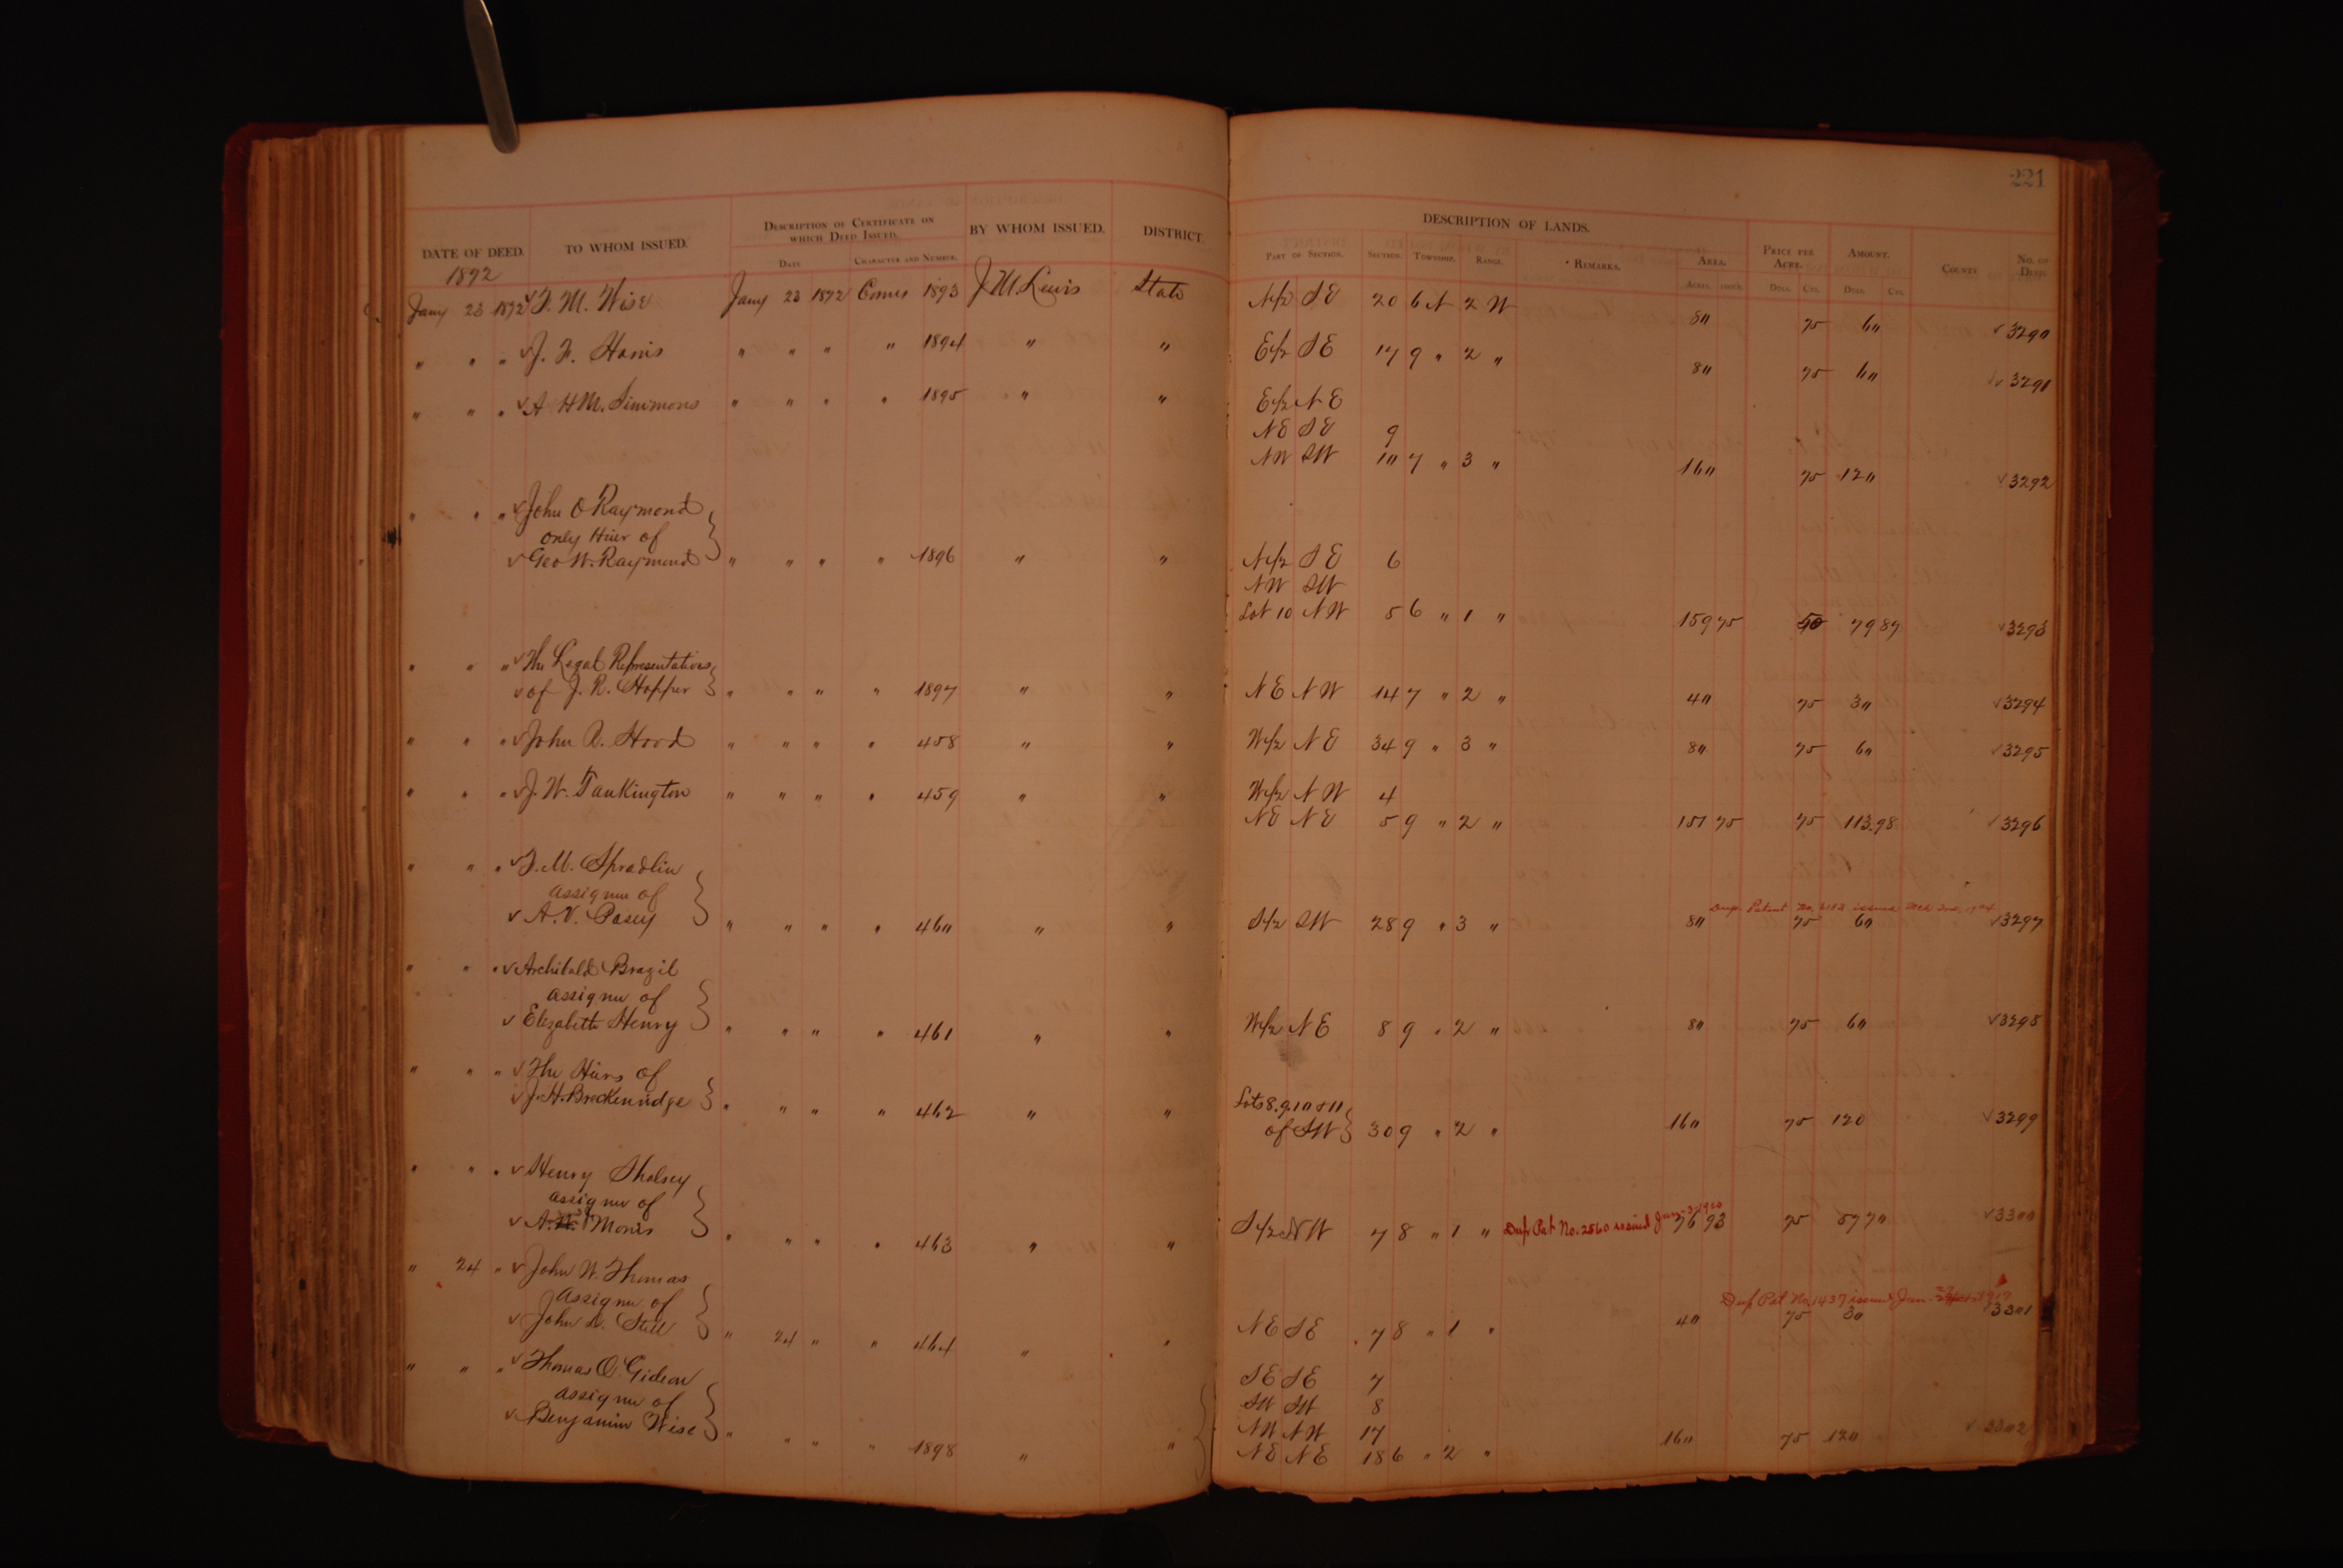 221
DESCRIPTION OF LANDS.
DATE OF DEED. TO WHOM ISSUED. DESCRIPTION OF CERTIFICATE ON WHICH DEED ISSUED. BY WHOM ISSUED. DISTRICT. PART OF SECTION. SECTION. TOWNSHIP. RANGE. REMARKS. AREA. PRICE PER ACRE. AMOUNT. COUNTY NO. OF DEED.
DATE CHARACTER AND NUMBER. ACRES. DOLL. CTS. DOLL. CTS.
1892
Jany 23 1892 F. M. Wise Jany 23 1892 1893 J M Lewis State N 1/2 SE 20 6 N 2 W 80 75 60 3290
" " " J. F. Harris " " " " 1894 " " E 1/2 SE 17 9 " 2 " 80 75 60 3291
" " " A H M. Simmons " " " " 1895 " " E 1/2 NE
NE SE 9
NW SW 10 7 " 3 " 160 75 120 3292
" " " John O Raymond
only Hier of
Geo W. Raymond " " " " 1896 " " N 1/2 SE 6
NW SW
Lot 10 NW 5 6 " 1 " 159 75 50 79 87 3293
" " " The Legal Representatives
of J. R. Hopper " " " " 1897 " " NE NW 14 7 " 2 " 40 75 30 3294
" " " John R. Hood " " " " 458 " " W 1/2 NE 34 9 " 3 " 80 75 60 3295
" " " J. W. Tankington " " " " 459 " " W 1/2 NW 4
NE NE 5 9 " 2 " 151 75 75 113.98 3296
" " " F. M. Spradlin
assignee of
Dup. Patent No.
A. V. Posey " " " " 460 " " S 1/2 SW 28 9 " 3 " 80 75 60 3297
" " " Archibald Brazil
assignee of
Elizabeth Henry " " " " 461 " " W 1/2 NE 8 9 " 2 " 80 75 60 3298
" " " The Hiers of
J. H. Breckenridge " " " " 462 " " Lots 8. 9. 10 & 11
of SW 30 9 " 2 " 160 75 120 3299
" " " Henry Sholsey
assignee of
A. Morris " " " " 463 " " S 1/2 NW 7 8 " 1 " Dup Pat No. 2560 issued Jan-3-1920 76 93 75 57 70 3300
" 24 " John W. Thomas
assignee of
Dup Pat No. 1437 issued Jan 1917
John D. Still " 24 " " 464 " " NE SE 7 8 " 1 " 40 75 30 3301
" " " Thomas O. Gideon
assignee of
Benjamin Wise " " " " 1898 " " SE SE 7
SW SW 8
NW NW 17
NE NE 18 6 " 2 " 160 75 120 3302